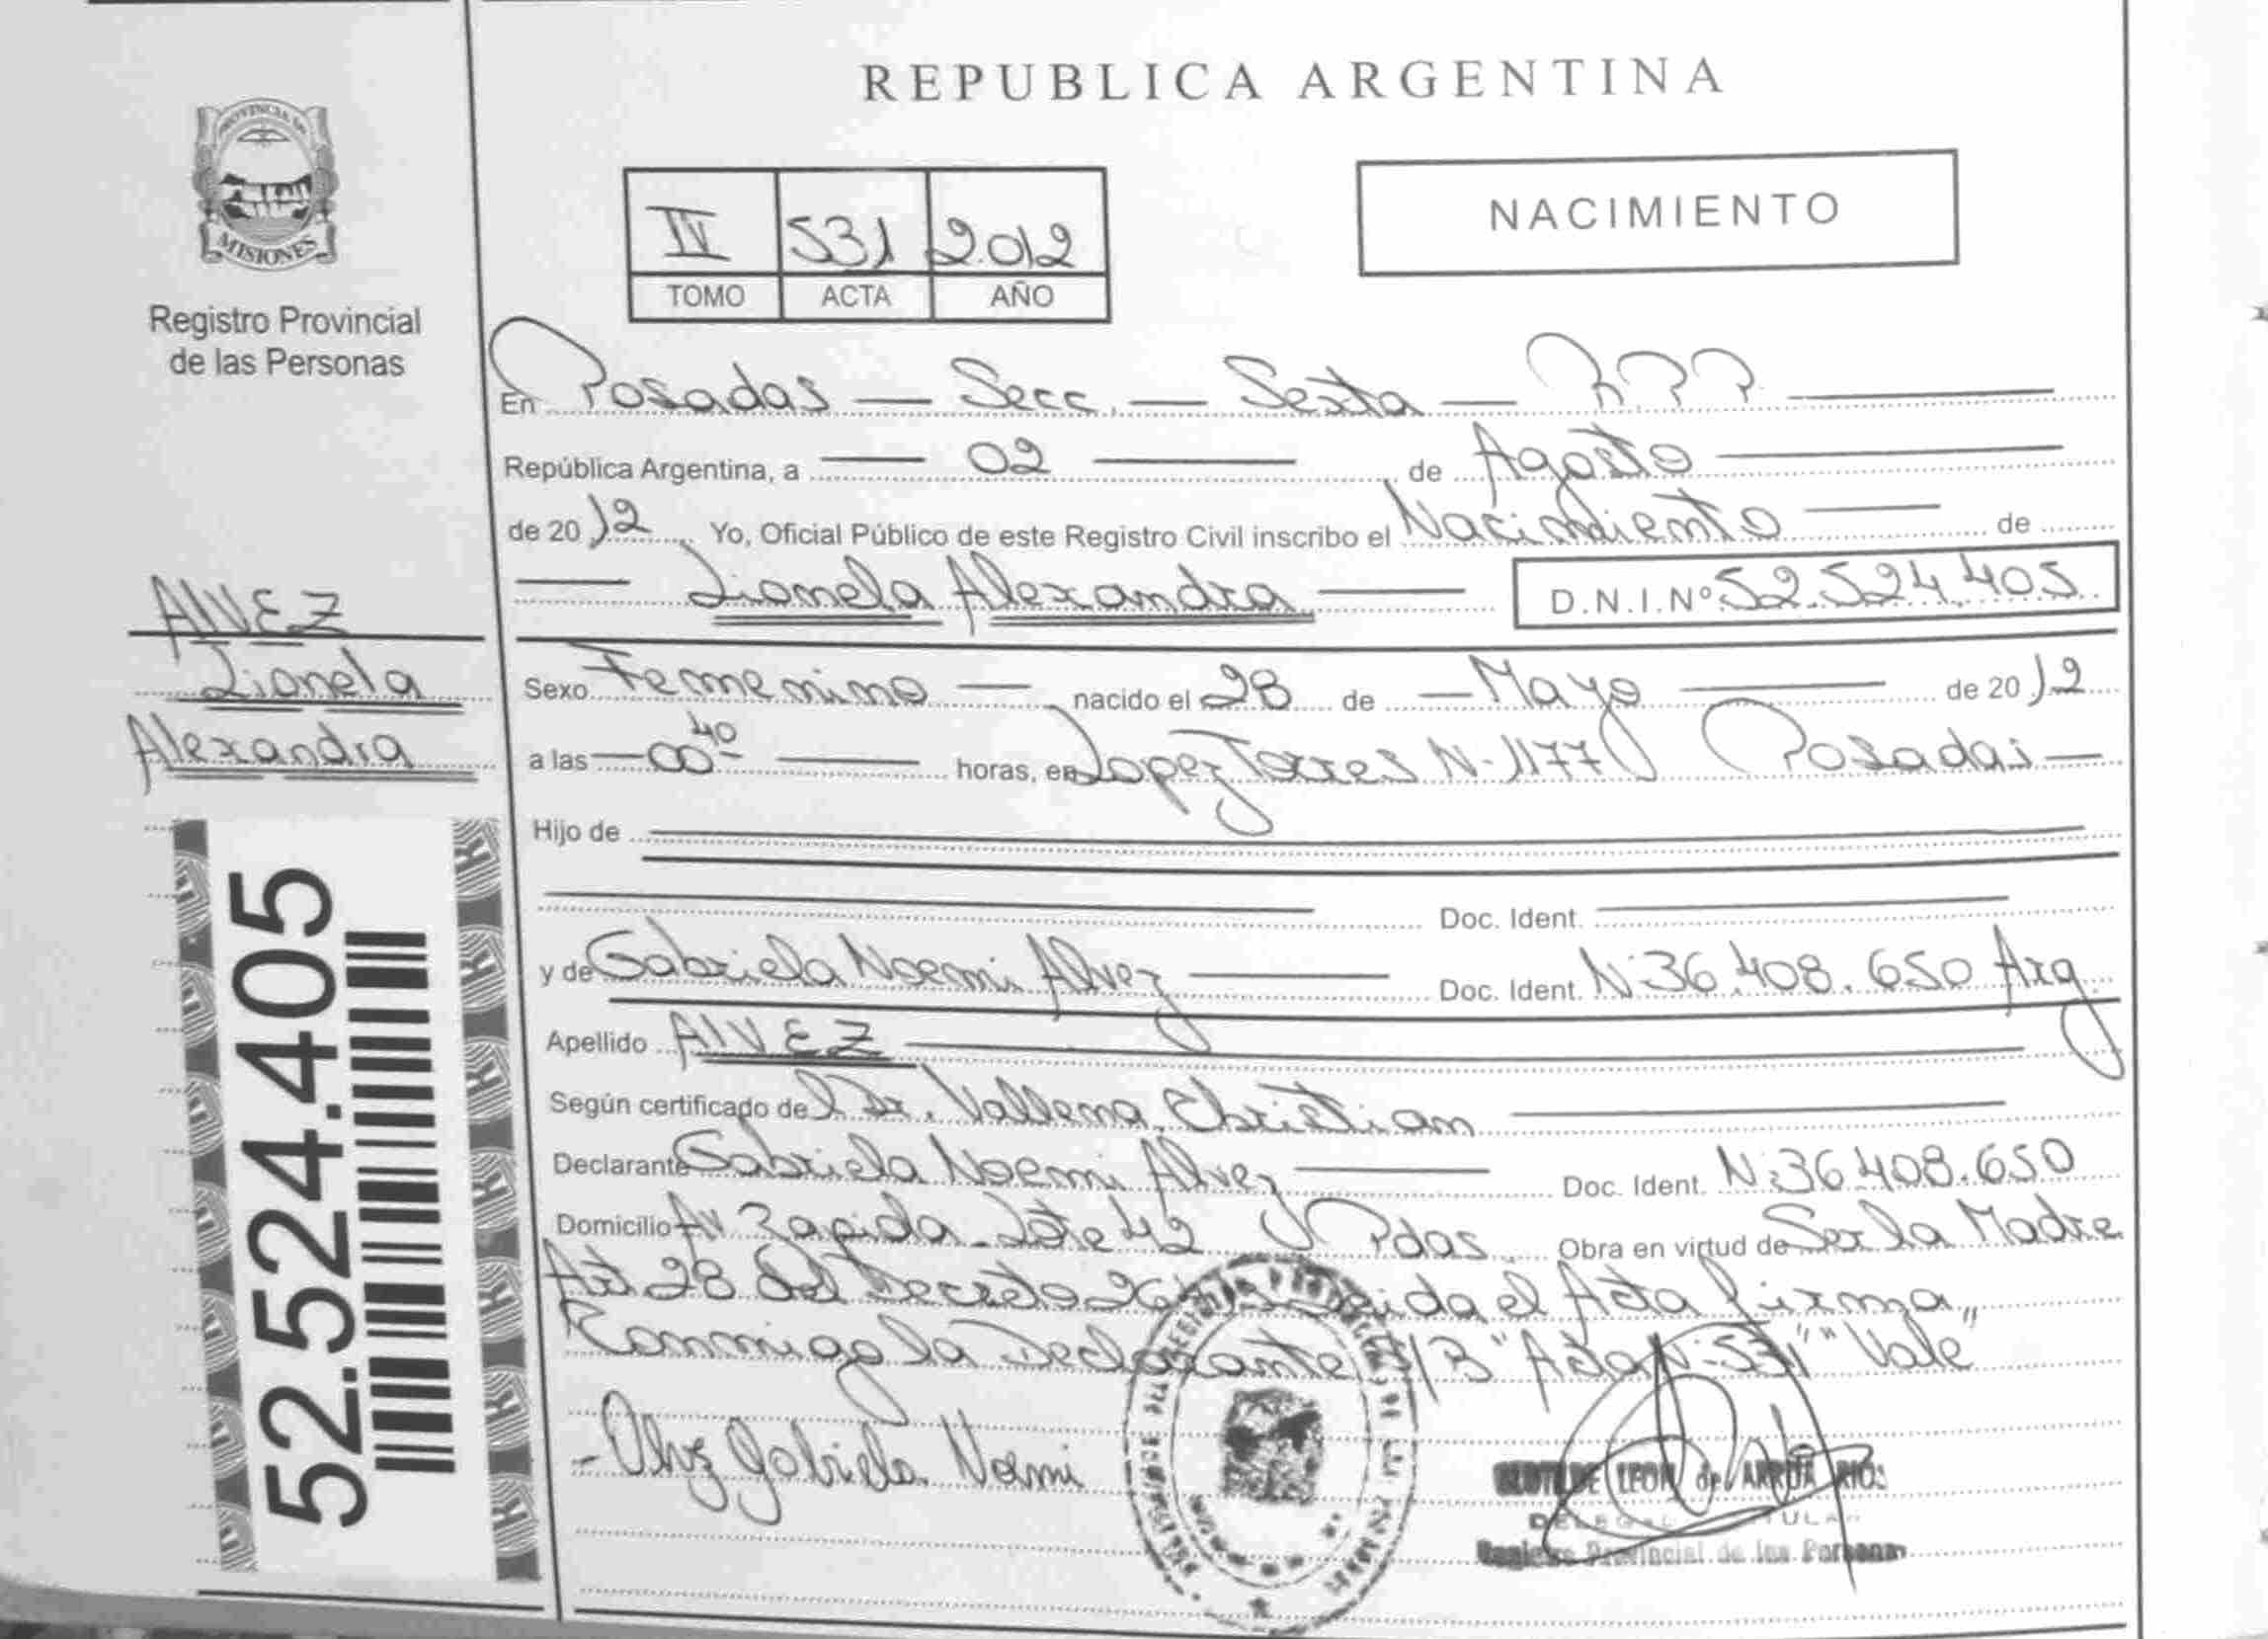 REPUBLICA ARGENTINA
PROVINCIA DE
MISIONES
Registro Provincial
de las Personas
NACIMIENTO
IV 531 2.012
TOMO ACTA AÑO
En Posadas — Secc. — Sexta — R P P
República Argentina, a — 02 — de Agosto
de 2012 Yo, Oficial Público de este Registro Civil inscribo el Nacimiento — de
— Lionela Alexandra — D.N.I.Nº 52.524.405
ALVEZ
Lionela
Alexandra
Sexo Femenino — nacido el 28 de — Mayo — de 2012
a las — 00 40 — horas, en Lopez Torres N-1177 Posadas —
Hijo de
Doc. Ident.
y de Gabriela Noemi Alvez — Doc. Ident. N:36.408.650 Arg
Apellido ALVEZ
Según certificado del Dr. Christian
Declarante Gabriela Noemi Alvez — Doc. Ident. N:36.408.650
Domicilio Av Rapida - Lote 42 Pdas. Obra en virtud de Ser la Madre
Art 28 del Decreto el Acta Firma
Conmigo la Declarante S/B "Acta N-531" "Vale"
- Alvez Gabriela Noemi
CLOTILDE LEON de ARRUA RIOS
Registro Provincial de las Personas
52.524.405